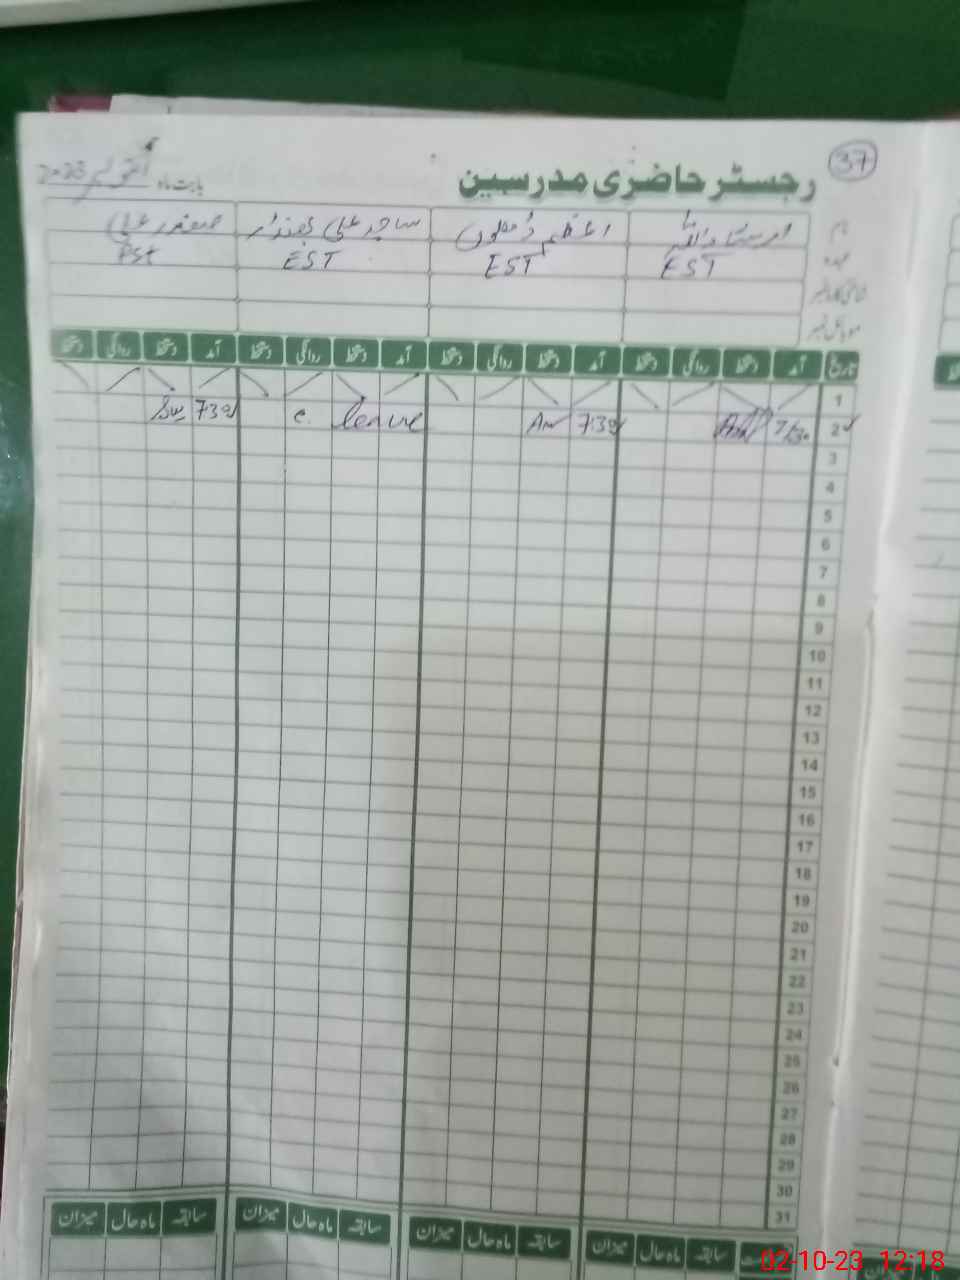 37
رجسٹر حاضری مدرسین
بابت ماہ اکتوبر 2023
نام
ساجد علی
صفدر علی
عہدہ EST EST EST PST
موبائل نمبر
تاریخ آمد دستخط روانگی دستخط آمد دستخط روانگی دستخط آمد دستخط روانگی دستخط آمد دستخط روانگی دستخط
1
2 7/30 7:30 leave c 7:30
3
4
5
6
7
8
9
10
11
12
13
14
15
16
17
18
19
20
21
22
23
24
25
26
27
28
29
30
31
سابقہ ماہ حال میزان سابقہ ماہ حال میزان سابقہ ماہ حال میزان سابقہ ماہ حال میزان
02-10-23 12:18